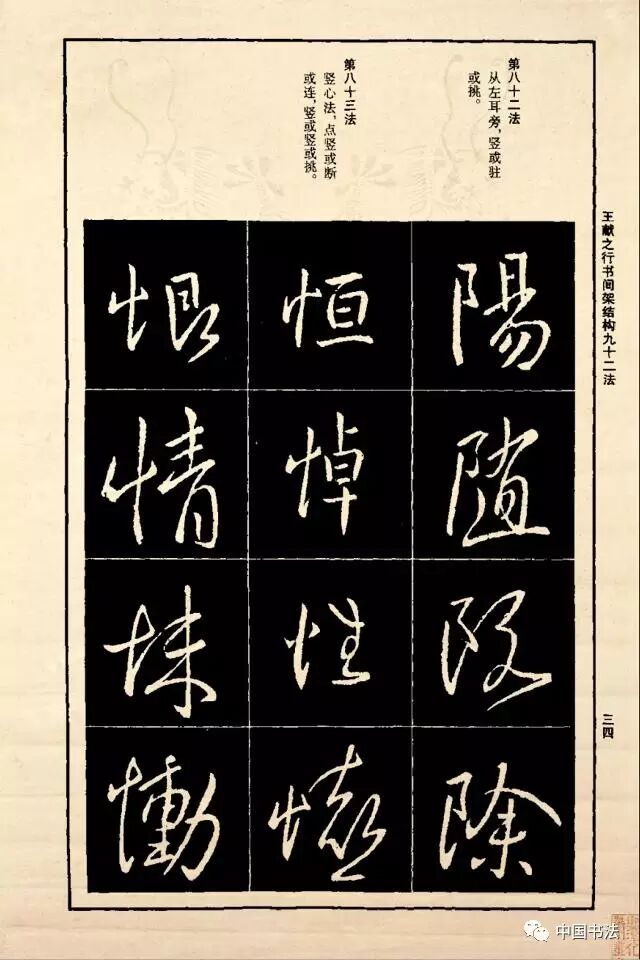 王献之行书间架结构九十二法
三四
第八十二法
从左耳旁,竖或驻
或挑。
第八十三法
竖心法,点竖或断
或连,竖或竖或挑。
陽
除
恒
悼
性
恨
情
慟
中国书法